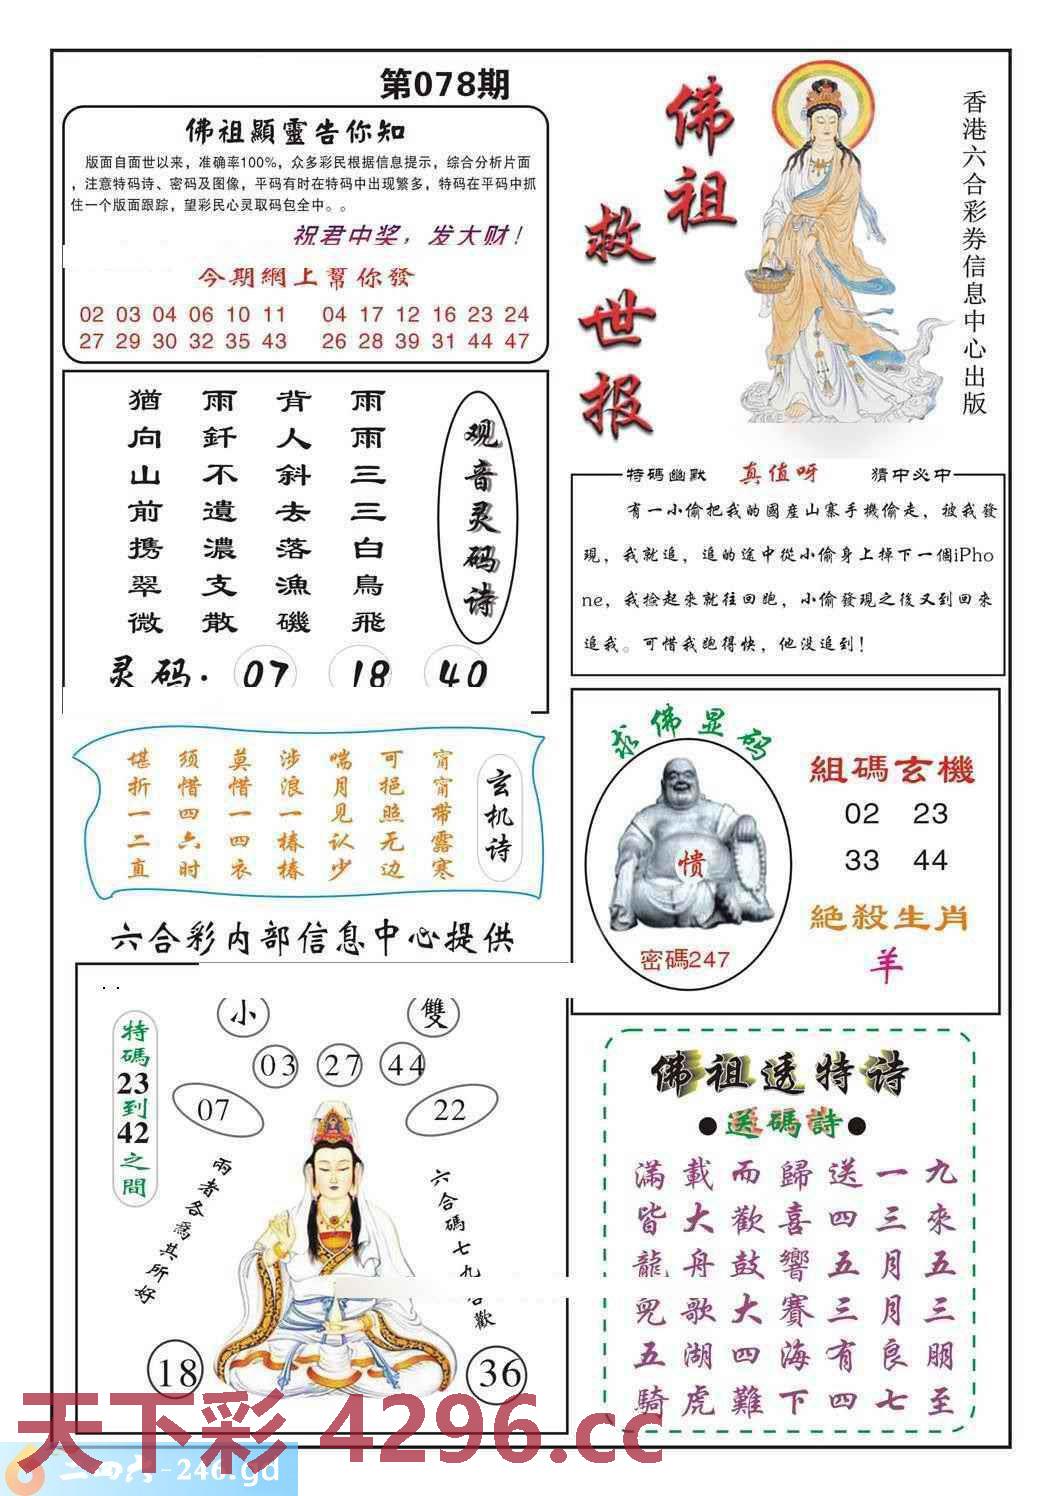 第078期
佛祖顯靈告你知
版面自面世以来，准确率100%，众多彩民根据信息提示，综合分析片面
，注意特码诗、密码及图像，平码有时在特码中出现繁多，特码在平码中抓
住一个版面跟踪，望彩民心灵取码包全中。。
祝君中奖，发大财！
今期網上幫你發
02 03 04 06 10 11 04 17 12 16 23 24
27 29 30 32 35 43 26 28 39 31 44 47
佛祖
救世报
香港六合彩券信息中心出版
观音灵码诗
雨雨三三白鳥飛
背人斜去落漁磯
雨釬不遺濃支散
猶向山前携翠微
灵码．07 18 40
特碼幽默 真值呀 猜中必中
有一小偷把我的國産山寨手機偷走，被我發
現，我就追，追的途中從小偷身上掉下一個iPho
ne，我捡起來就往回跑，小偷發現之後又到回來
追我。可惜我跑得快，他没追到！
玄机诗
甯甯带露寒
可挹照无边
喘月见认少
涉浪一椿椿
莫惜一四衣
须惜四六时
堪折一二直
求佛显码
愦
密碼247
組碼玄機
02 23
33 44
絕殺生肖
羊
六合彩内部信息中心提供
. .
特碼23到42之間
小
雙
03 27 44
07
22
兩者各爲其所好
六合碼七九
歡
18
36
佛祖透特诗
●送碼詩●
滿載而歸送一九
皆大歡喜四三來
龍舟鼓響五月五
兒歌大賽三月三
五湖四海有良朋
騎虎難下四七至
天下彩 4296.cc
二四六-246.gd